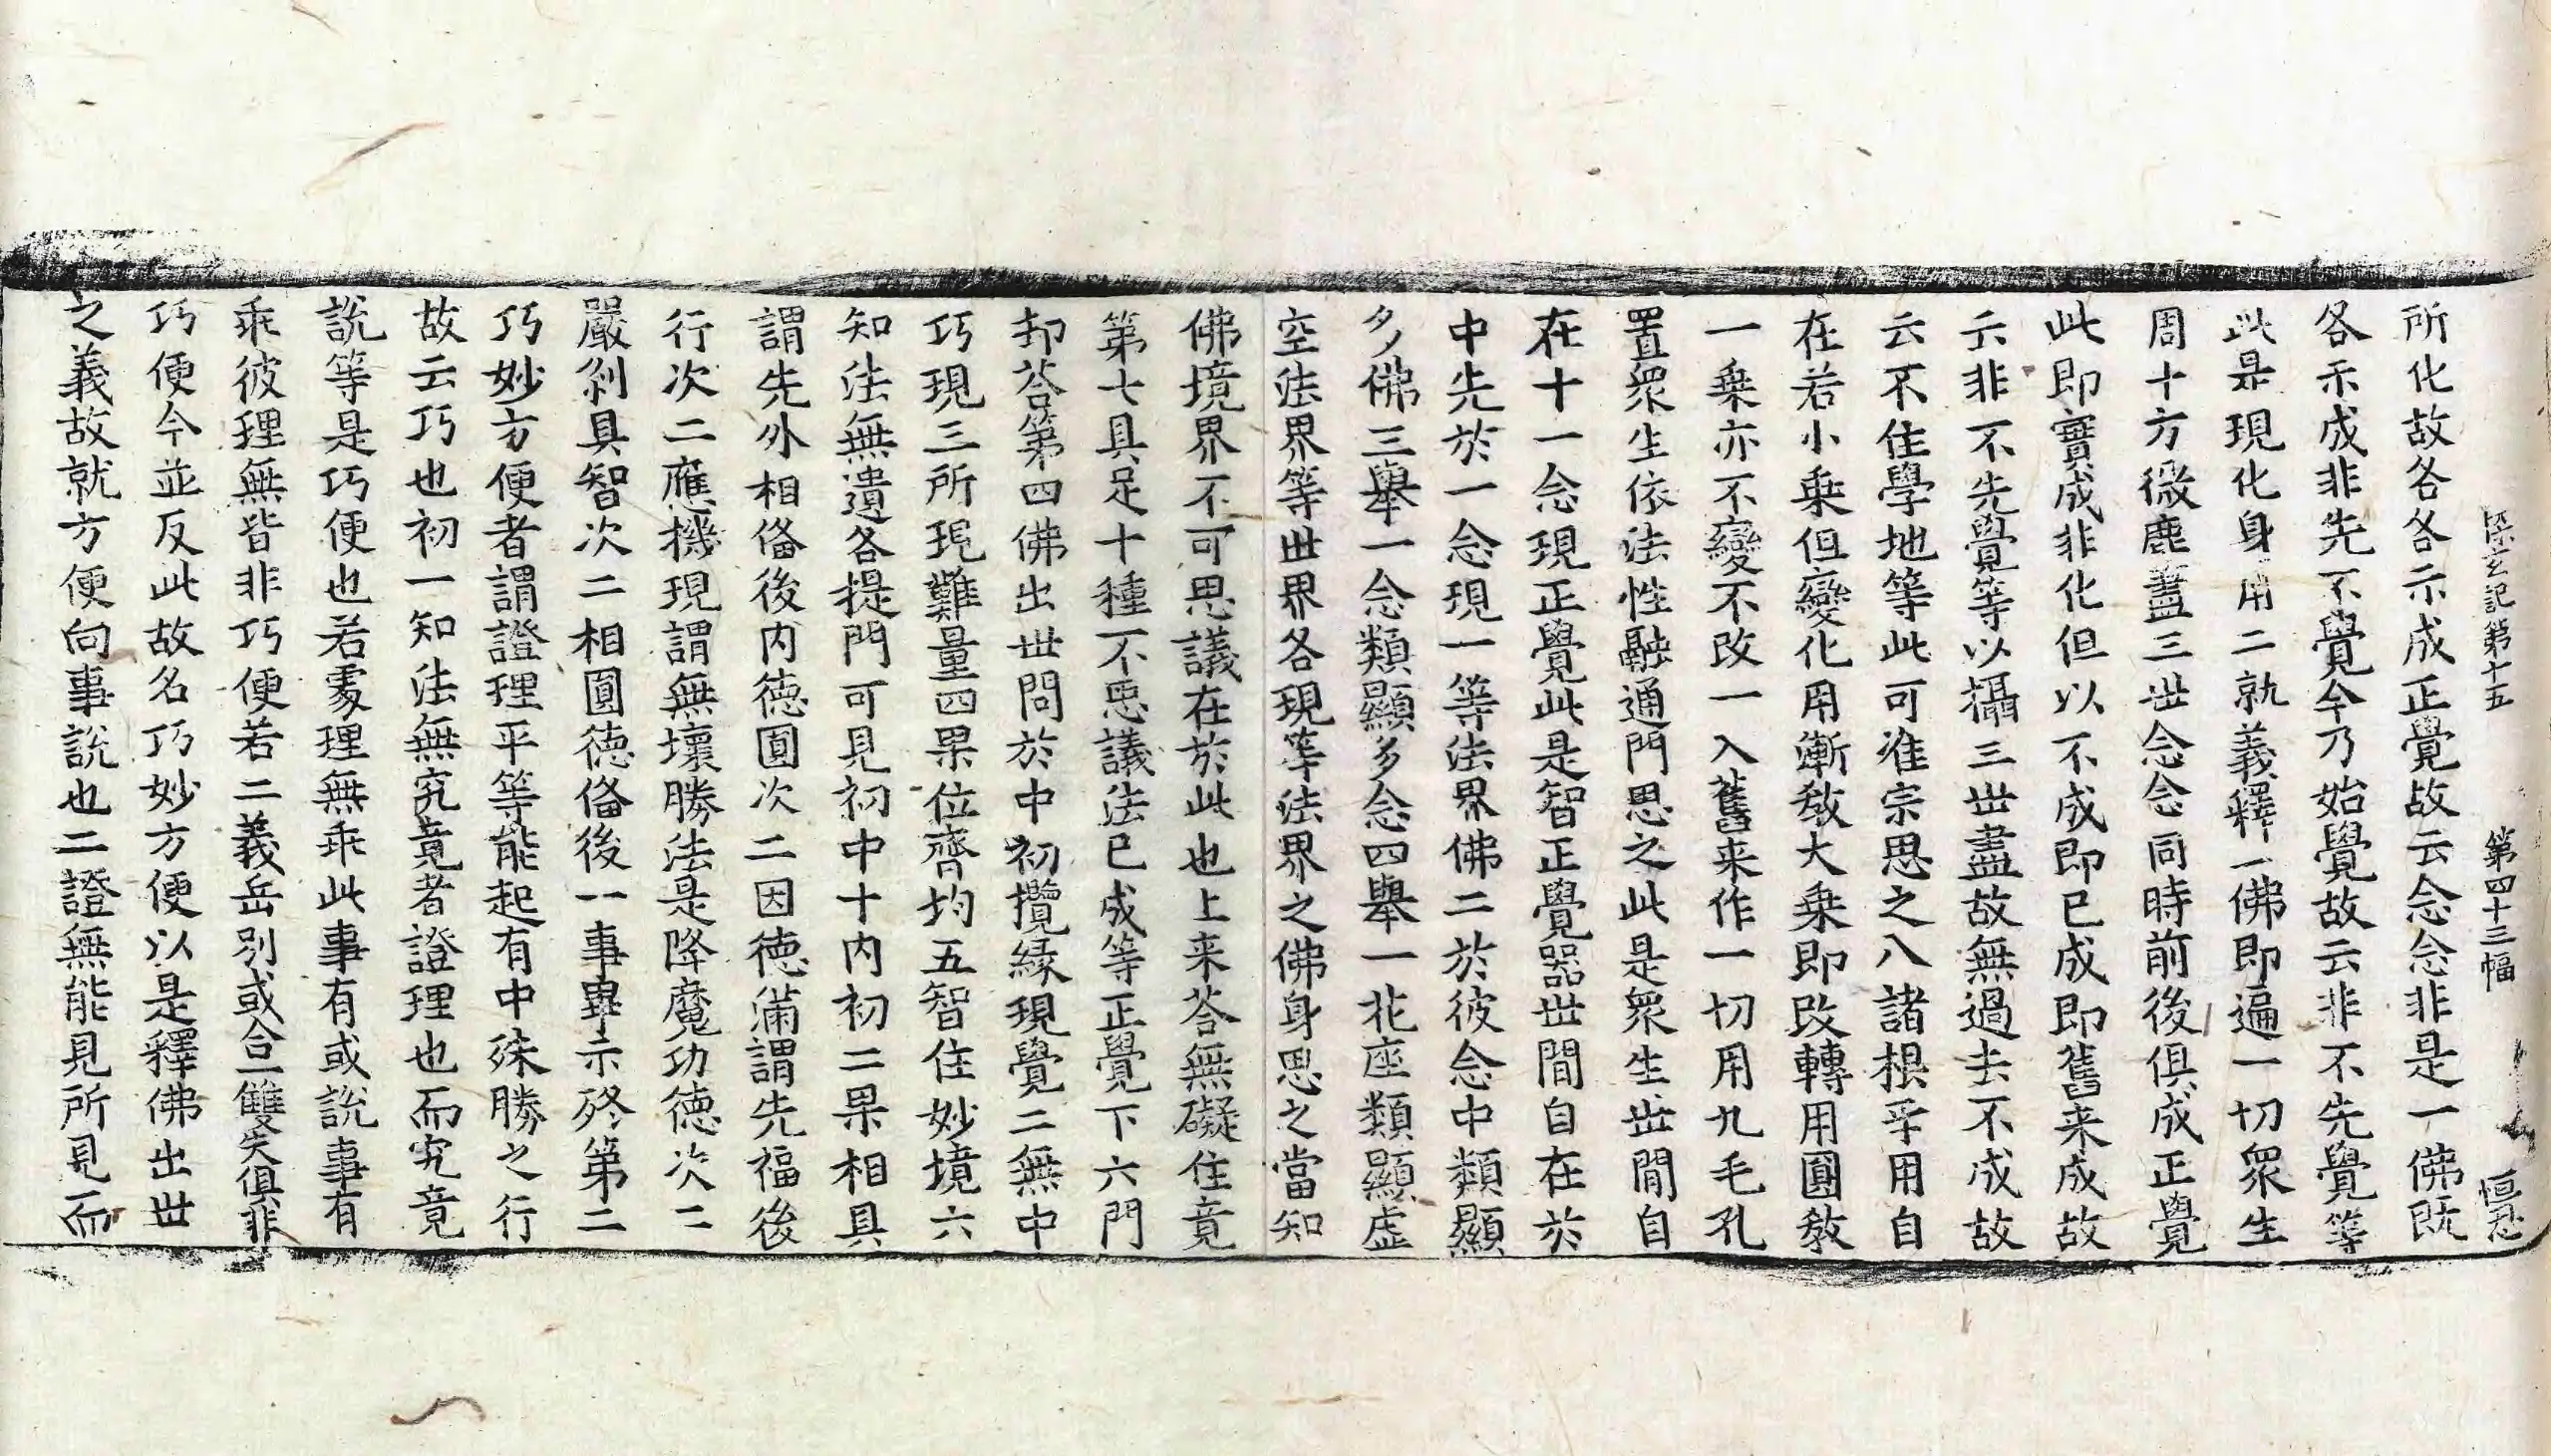 探玄記第十五　第四十三幅
所化故各各示成正覺故云念念非是一佛既
各示成非先不覺今乃始覺故云非不先覺等
此是現化身用二就義釋一佛即遍一切衆生
周十方微塵盡三世念念同時前後俱成正覺
此即實成非化但以不成即已成即舊来成故
云非不先覺等以攝三世盡故無過去不成故
云不住學地等此可准宗思之八諸根平用自
在若小乗但變化用漸教大乗即改轉用圓教
一乗亦不變不改一入舊来作一切用九毛孔
置衆生依法性融通門思之此是衆生世間自
在十一念現正覺此是智正覺器世間自在於
中先於一念現一等法界佛二於彼念中類顯
多佛三舉一念類顯多念四舉一花座類顯虚
空法界等世界各現等法界之佛身思之當知
佛境界不可思議在於此也上来荅無礙住竟
第七具足十種不思議法已成等正覺下六門
却荅第四佛出世問於中初攬縁現覺二無中
巧現三所現難量四果位齊均五智住妙境六
知法無遺各提門可見初中十内初二果相具
謂先外相俻後内徳圓次二因徳滿謂先福後
行次二應機現謂無壞勝法是降魔功徳次二
嚴刹具智次二相圓徳俻後一事畢示終第二
巧妙方便者謂證理平等能起有中殊勝之行
故云巧也初一知法無究竟者證理也而究竟
說等是巧便也若處理無乖此事有或說事有
乖彼理無皆非巧便若二義岳別或合一雙失俱非
巧便今並反此故名巧妙方便以是釋佛出世
之義故就方便向事說也二證無能見所見而